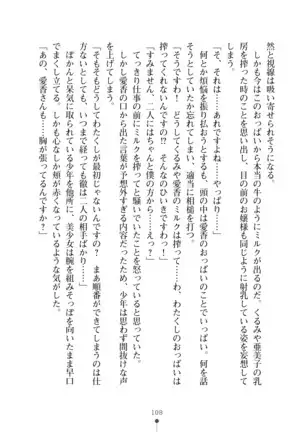 然と視線は吸い寄せられそうになる。
しかも今はこのおっぱいから本当の牛のようにミルクが出るのだ。くるみや亜美子の乳
房を搾った時のことを思い出し、目の前のお嬢様も同じように射乳している姿を妄想して
しまう。
「それは……あれですよね……やっぱり……」
何とか煩悩を振り払おうとするが、頭の中は愛香のおっぱいのことでいっぱいで、何を話
そうとしていたか忘れてしまい、適当に相槌を打つ。
「そうですわ！　どうしてくるみや愛香のミルクは搾って、わ、わたくしのおっぱいは
搾ってくれないんですの!?　そんなのひいきですわ！」
「すみません、二人にはちゃんと僕の方から……えっ？」
てっきり仕事の前にミルクを搾ってと騒いでいたことを怒っていると思っていた。
しかし愛香の口から出た言葉が予想外すぎる内容だったため、少年は思わず間抜けな声
を上げてしまう。
「そもそもどうしてわたくしが最初じゃないんですの？　まあ順番ができてしまうのは仕
方ないとしても、いつまで経っても徹は二人の相手ばかり……」
ぽかんと呆気に取られる少年を他所に、美少女は腕を組みそっぽを向いたまま早口
でまくし立てる。しかも心なしか頬が赤くなっているような気がした。
「あの、愛香さんも……胸が張ってるんですか？」
108